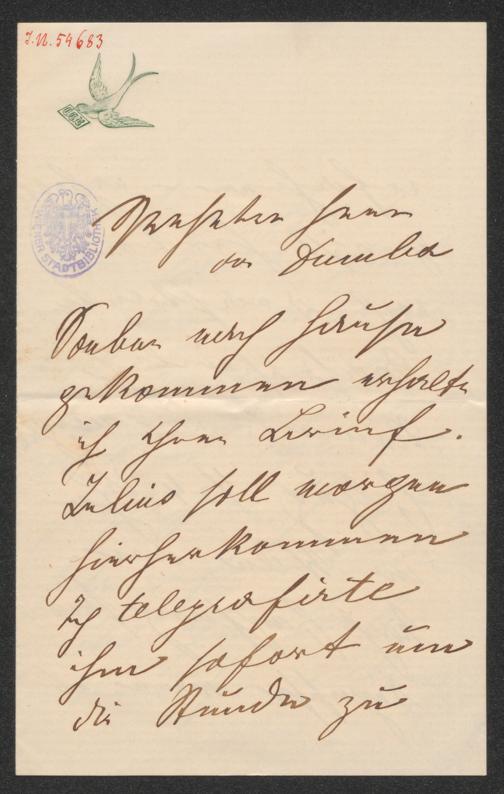 I.N. 54683
WIENER STADTBIBLIOTHEK
Verehrter Herr
von Dumba
Soeben nach Hause
gekommen erhalte
ich Ihren Brief.
Julius soll morgen
hierherkommen
Ich telegrafirte
ihm sofort um
die Stunde zu